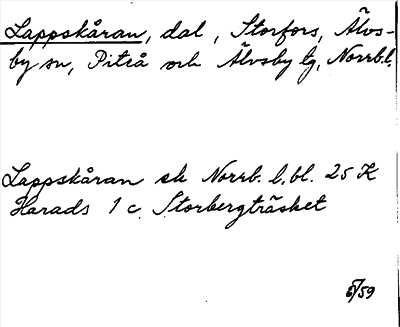 Lappskåran, dal, Storfors, Älvs-
by sn, Piteå och Älvsby tg, Norrb.l.
Lappskåran ek Norrb.l.bl. 25 K
Harads 1 c Storbergträsket
/59